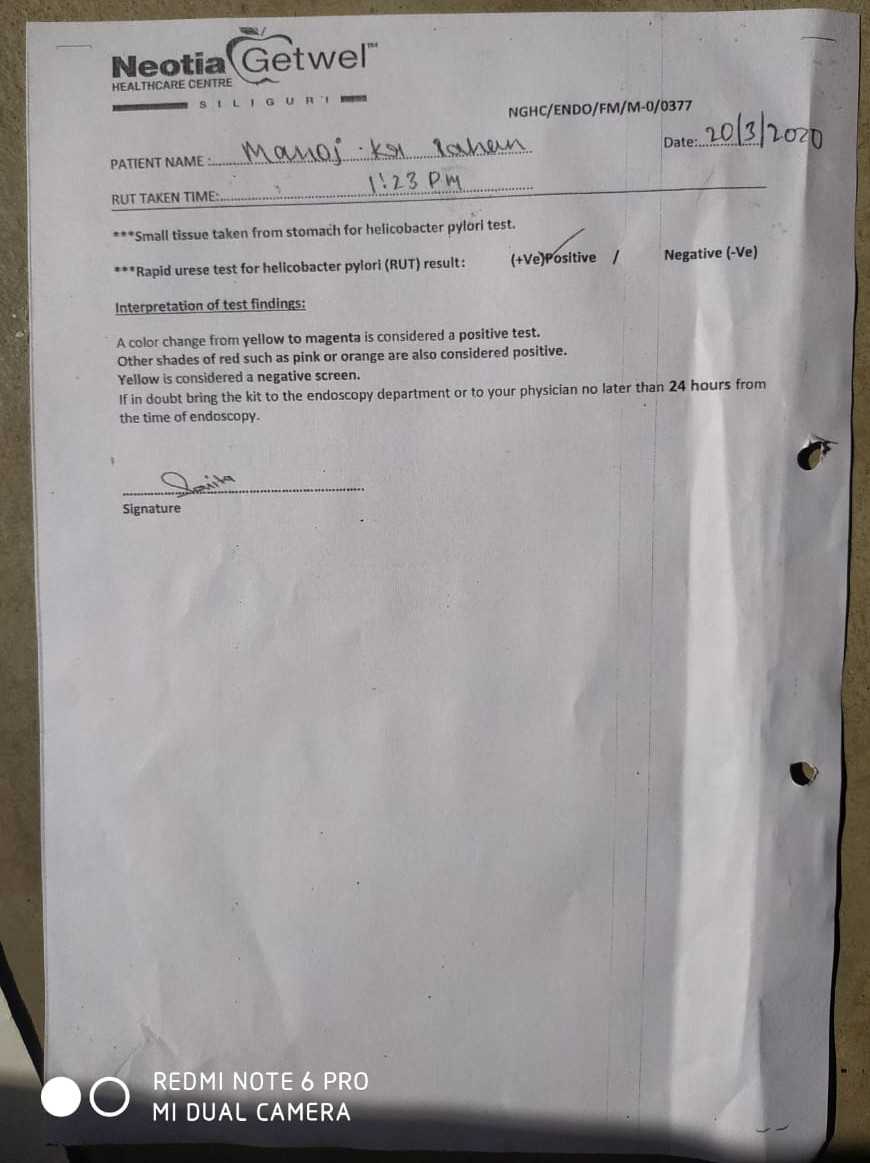 Neotia Getwel™
HEALTHCARE CENTRE
SILIGURI
NGHC/ENDO/FM/M-0/0377
Date:..20/3/2020
PATIENT NAME :...... Manoj Kr
RUT TAKEN TIME:...... 1:23 PM
***Small tissue taken from stomach for helicobacter pylori test.
***Rapid urese test for helicobacter pylori (RUT) result: (+Ve)Positive / Negative (-Ve)
Interpretation of test findings:
A color change from yellow to magenta is considered a positive test.
Other shades of red such as pink or orange are also considered positive.
Yellow is considered a negative screen.
If in doubt bring the kit to the endoscopy department or to your physician no later than 24 hours from
the time of endoscopy.
Signature
REDMI NOTE 6 PRO
MI DUAL CAMERA